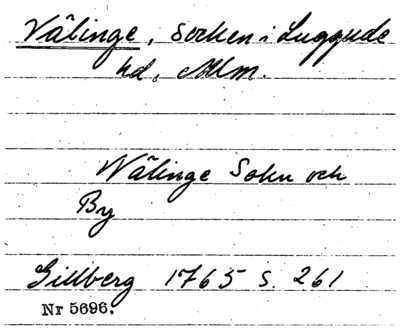 Välinge, socken i Luggude
hd, Mlm.
Wälinge Sokn och
By
Gillberg 1765 s. 261
Nr 5696.